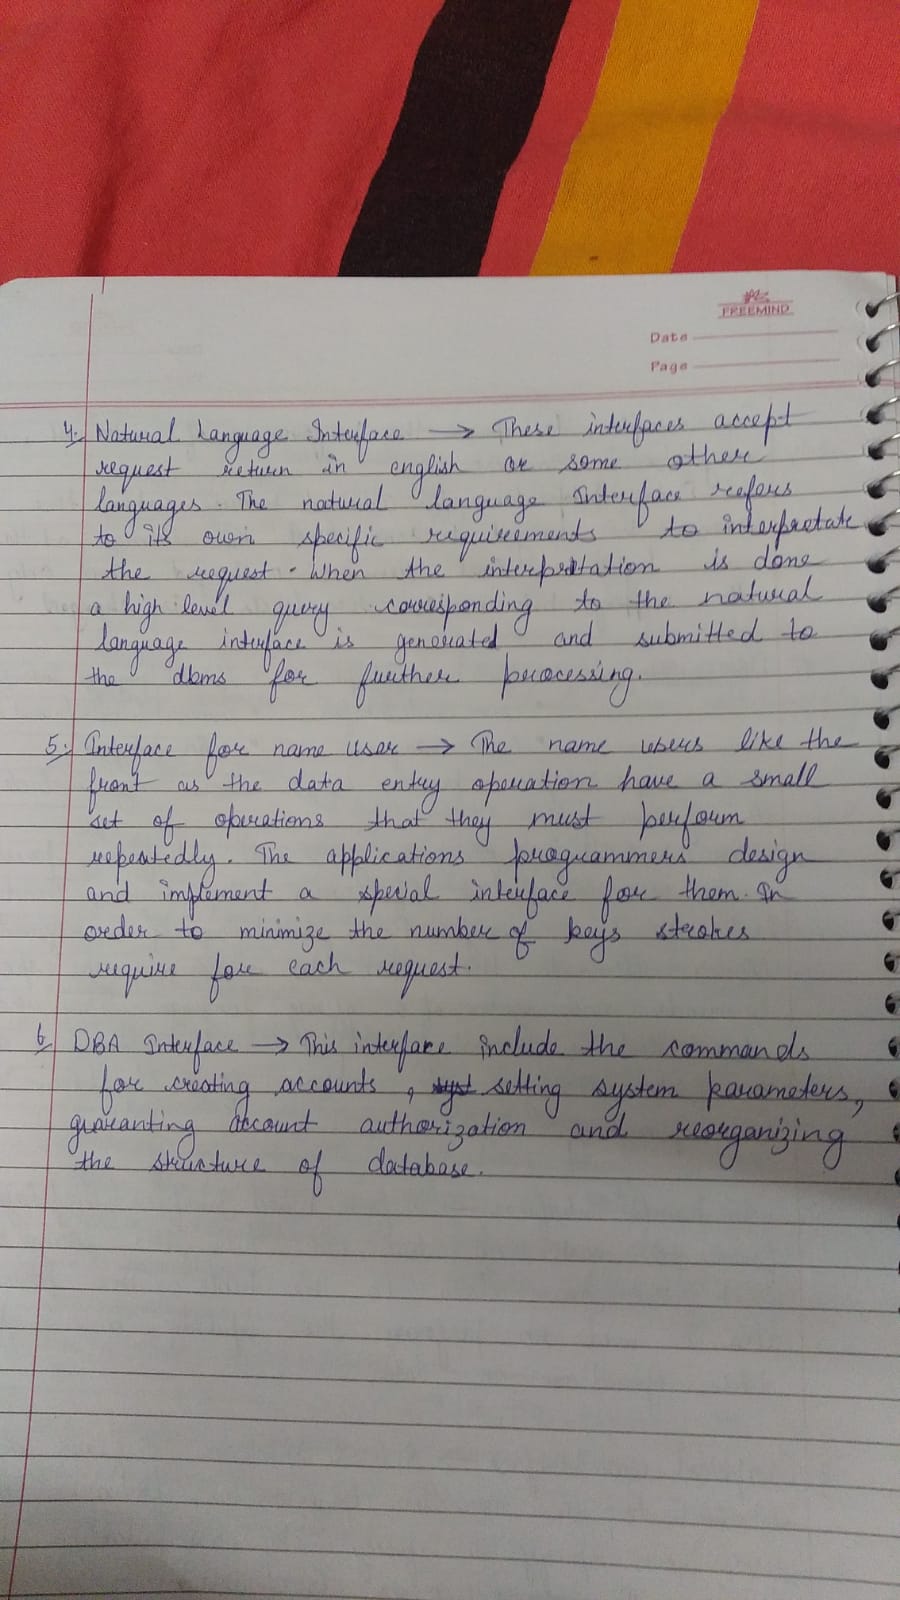 FREEMIND
Date
Page
4. Natural Language Interface → These interfaces accept
request return in english or some other
languages. The natural language Interface refers
to its own specific requirements to interpretate
the request. When the interpretation is done
a high level query corresponding to the natural
language interface is generated and submitted to
the dbms for further processing.
5. Interface for name user → The name users like the
front as the data entry operation have a small
set of operations that they must perform
repeatedly. The applications programmers design
and implement a special interface for them. In
order to minimize the number of keys strokes
require for each request.
6. DBA Interface → This interface include the commands
for creating accounts, setting system parameters,
guaranting account authorization and reorganizing
the structure of database.